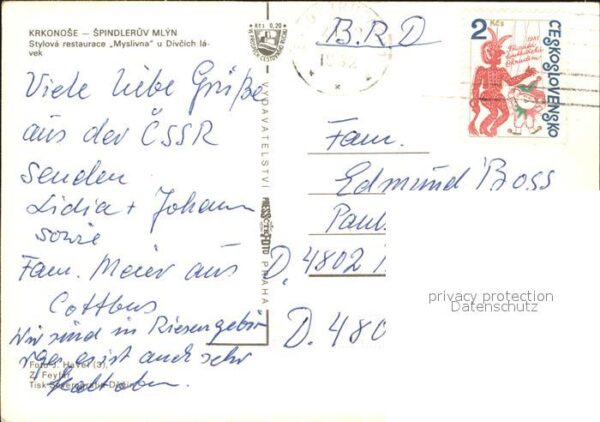 KRKONOŠE — ŠPINDLERŮV MLÝN
Stylová restaurace „Myslivna" u Dívčích lá-
vek
Viele liebe Grüße
aus der ČSSR
senden
Lidia + Johann
sowie
Fam. Meier aus
Cottbus
Wir sind in Riesengebir
rge, es ist auch sehr
Foto J. Havel (3),
Z. Feyfar
Tisk
Kčs 0,20
VYDAVATELSTVÍ
PRESSFOTO
PRAHA
B.R.D
2 Kčs
1981
ČESKOSLOVENSKO
Fam.
Edmund Boss
Paul
D. 4802
D. 480
privacy protection
Datenschutz